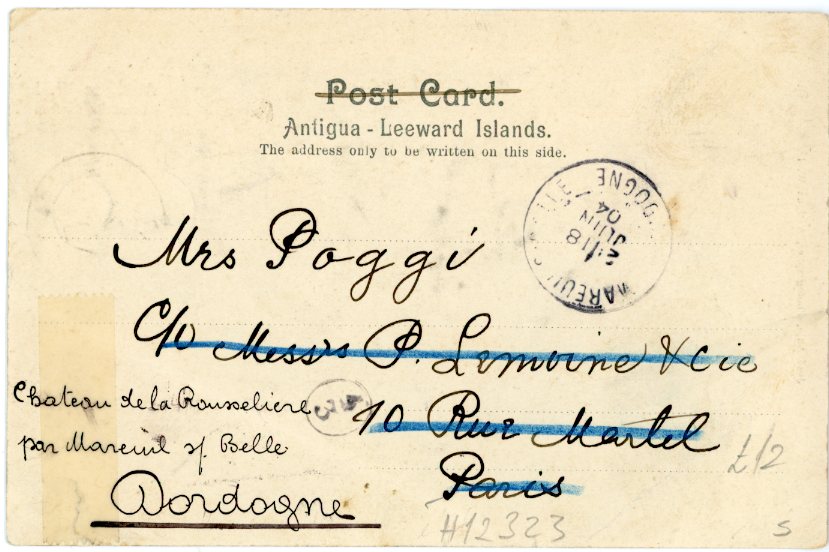 Post Card.
Antigua - Leeward Islands.
The address only to be written on this side.
MAREUIL
DOGNE
2 18
JUIN
04
Mrs Poggi
C/o Messrs P. Lemoine & Cie
10 Rue Martel
Paris
Chateau de la Rousseliere
par Mareuil s/ Belle
Dordogne
£12
H12323
S